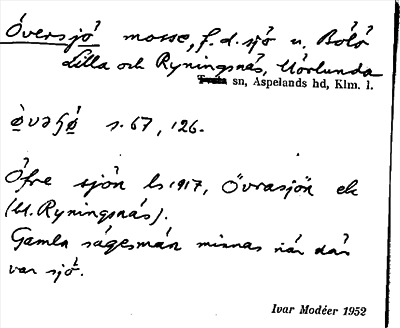 Översjö mosse, f.d. sjö u. Bölö
Lilla och Ryningsnäs, Mörlunda
sn, Aspelands hd, Klm. l.
s. 67, 126.
Öfre sjön ls 1917, Övrasjön ek
(M. Ryningsnäs).
Gamla sägesmän minnas när där
var sjö.
Ivar Modéer 1952